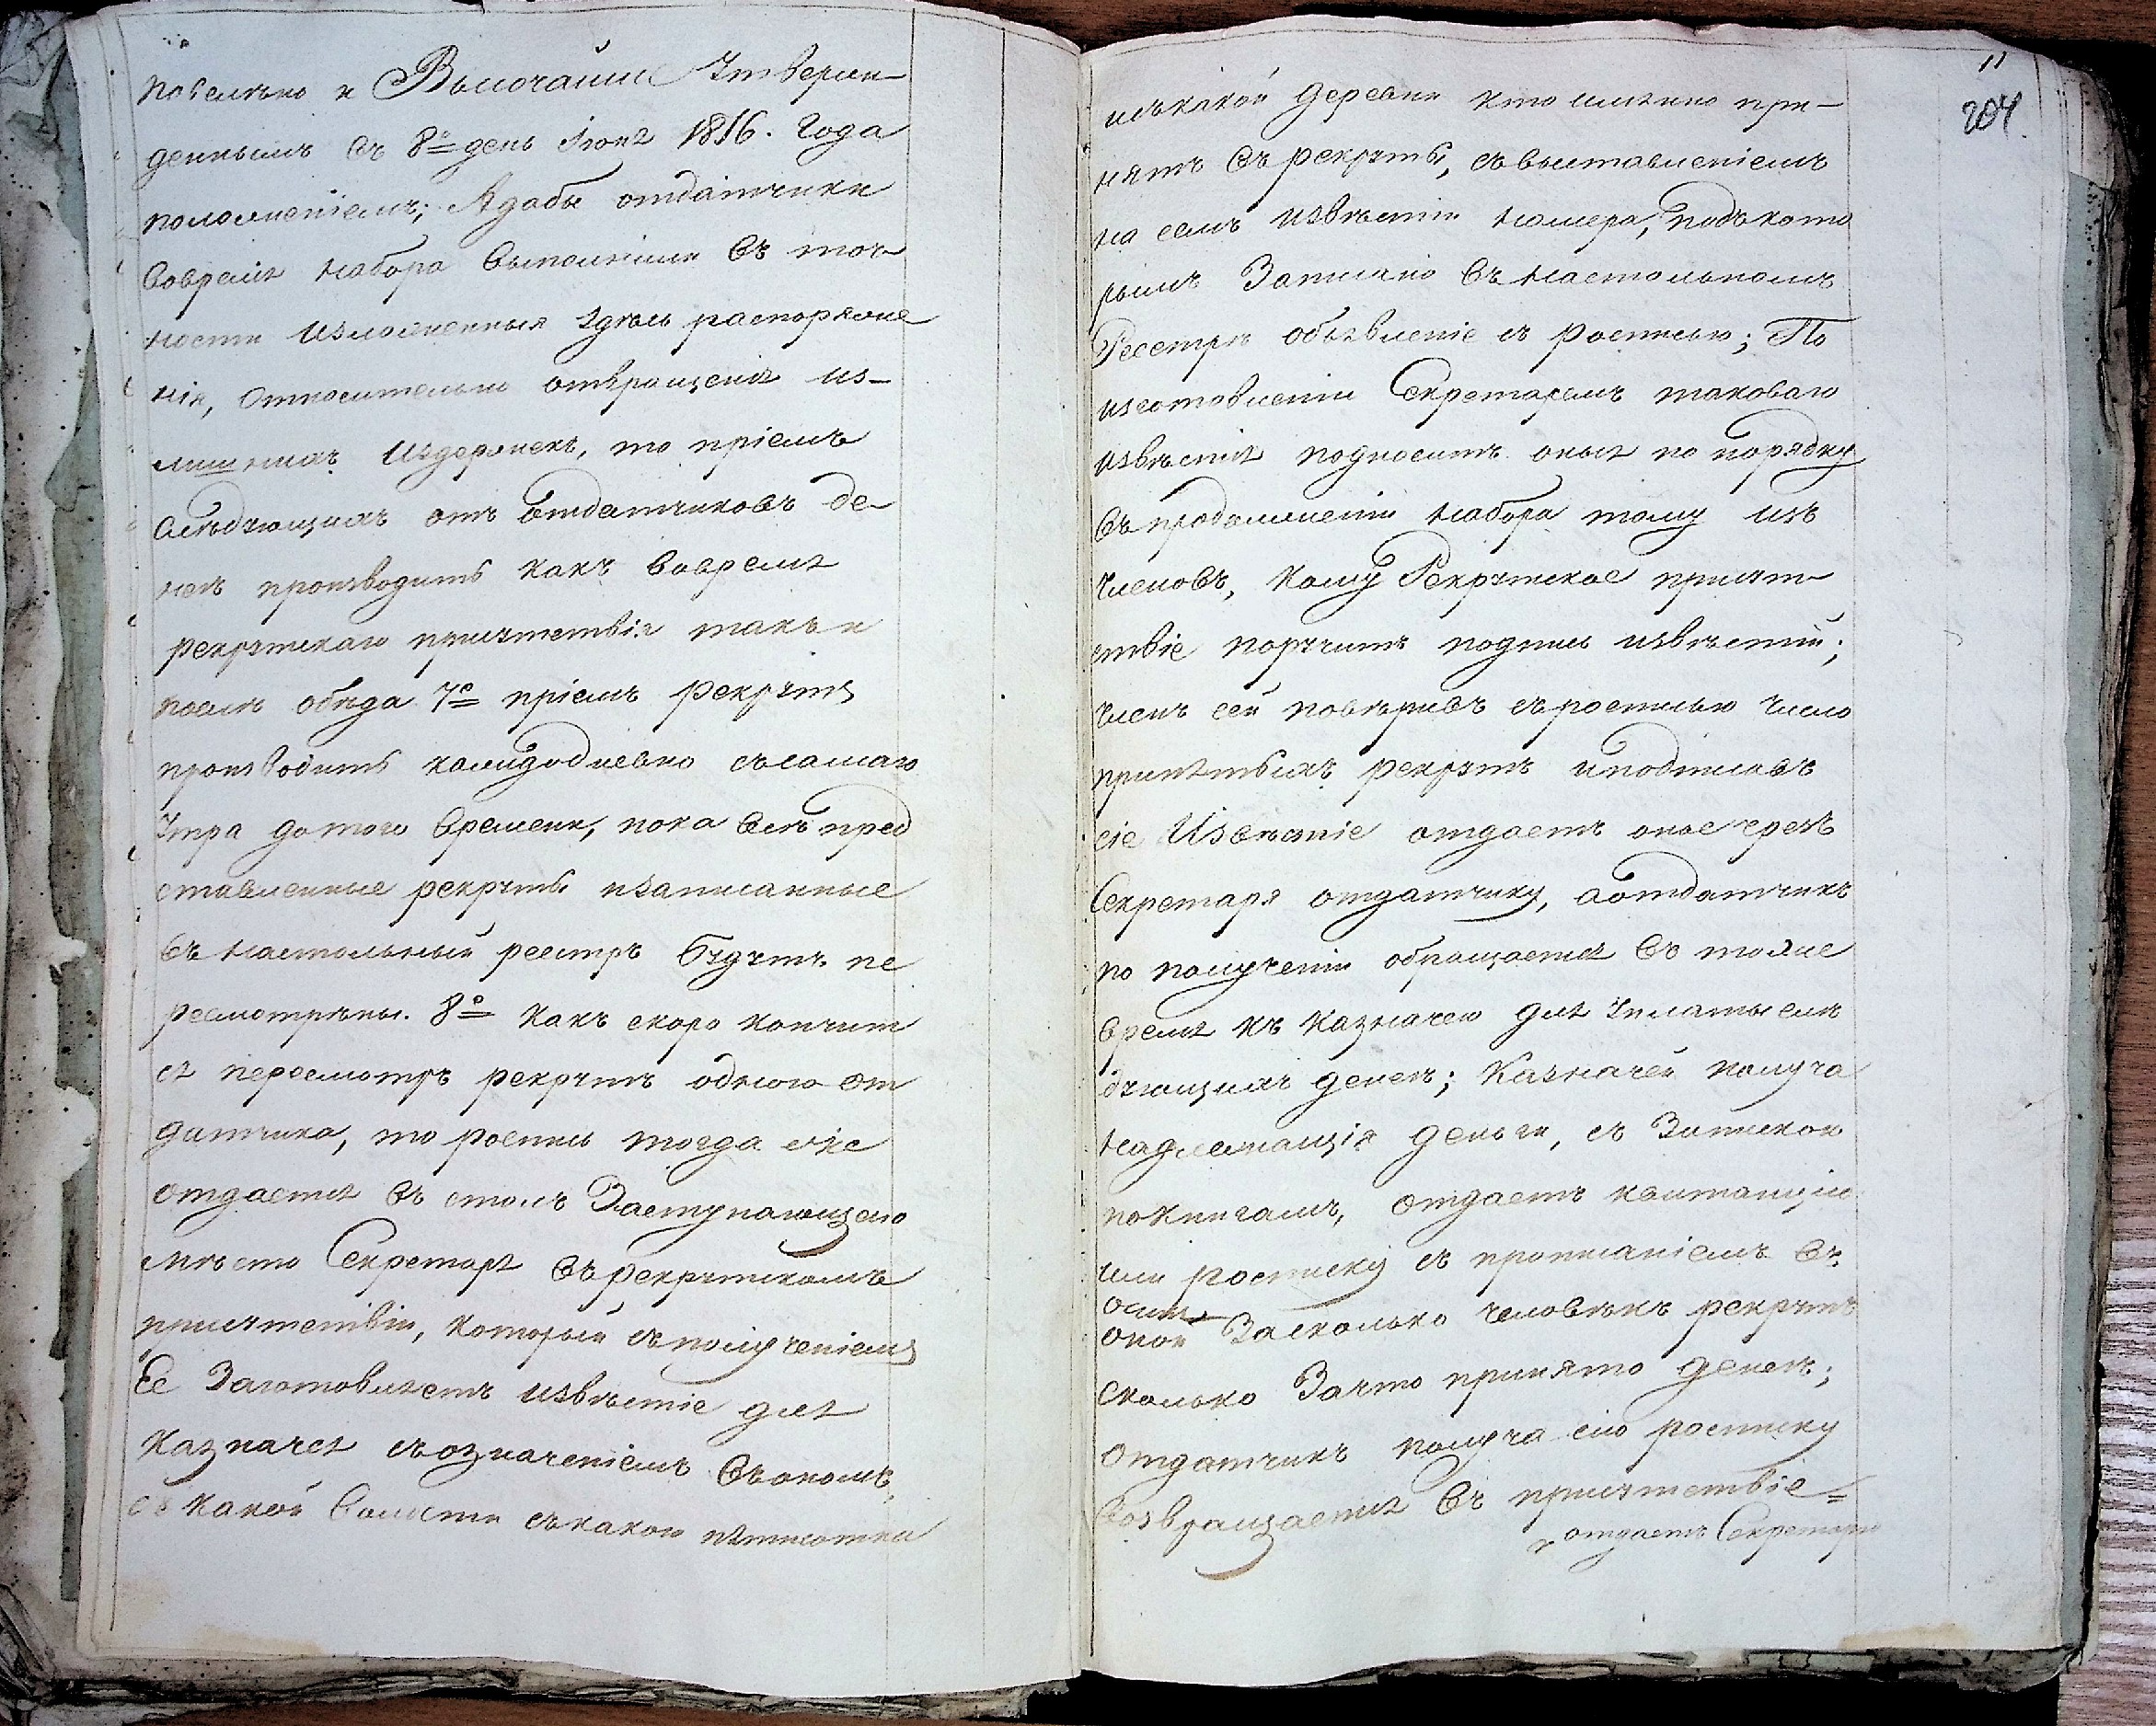 повелѣно и Высочайше Утверж-
деннымъ въ 8<sup>й</sup> день Іюня 1816. Года
положеніемъ; Адабы отдатчики
вовремя набора выполнили въ точ-
ности изложенныя здѣсь распоряже
нія, относительно отвращенія из-
лишнихъ Издержекъ, то пріемъ
слѣдующихъ отъ отдатчиковъ де-
негъ производить какъ вовремя
рекрутскаго присутствія такъ и
послѣ обѣда 7<sup>е</sup> пріемъ рекрутъ
производить каждодневно съсамаго
Утра дотого времени, пока всѣ пред
ставленные рекруты изаписанные
въ настольный реестръ будутъ пе
ресмотрѣны. 8<sup>е</sup> Какъ скоро кончит
ся пересмотръ рекрутъ одного от
датчика, то роспись тогда же
отдается въ столъ Заступающаго
мѣсто Секретаря въ рекрутскомъ
присутствіи, который съполученіемъ
Ее Заготовляетъ извѣстіе для
Казначея съозначеніемъ въономъ,
съ какой волости съкакого пятисотка
11
204.
исъкакой деревни кто имянно при-
нятъ въ рекруты, съвыставленіемъ
на семъ извѣстіи номера, подъкото
рымъ Записано въ настольномъ
Реестрѣ объявленіе съ росписью; По
изготовленіи Секретаремъ таковаго
извѣстія подноситъ оныя по порядку
въ продолженіи набора тому изъ
членовъ, кому Рекрутское присут-
ствіе поручитъ подпись извѣстій;
членъ сей повѣривъ съросписью число
принятыхъ рекрутъ иподписавъ
сіе Извѣстіе отдаетъ оное чрезъ
Секретаря отдатчику, аотдатчикъ
по полученіи обращается въ тоже
время къ Казначею для Уплаты слѣ
дующихъ денегъ; Казначей получа
надлежащія деньги, съ Запискою
покнигамъ, отдаетъ квитанцію
или росписку съ прописаніемъ въ
оной Засколько человѣкъ рекрутъ
сколько Зачто принято денегъ;
отдатчикъ получа сію росписку
возвращается въ присутствіе=
и отдаетъ Секретарю